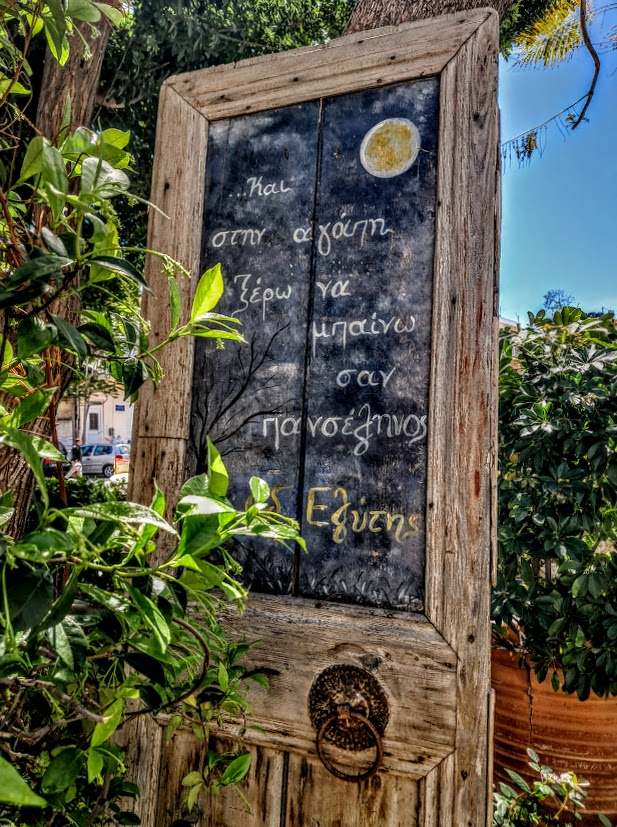 ...Και
στην αγάπη
ξέρω να
μπαίνω
σαν
πανσέληνος
Ελύτης